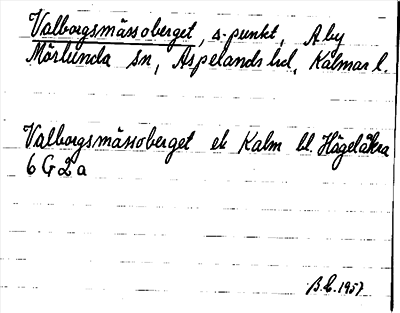 Valborgsmässoberget, s. punkt, Aby
Mörlunda sn, Aspelands hd, Kalmar l.
Valborgsmässoberget ek Kalm bl. Hägelåkra
6 G 2 a
B.E. 1957